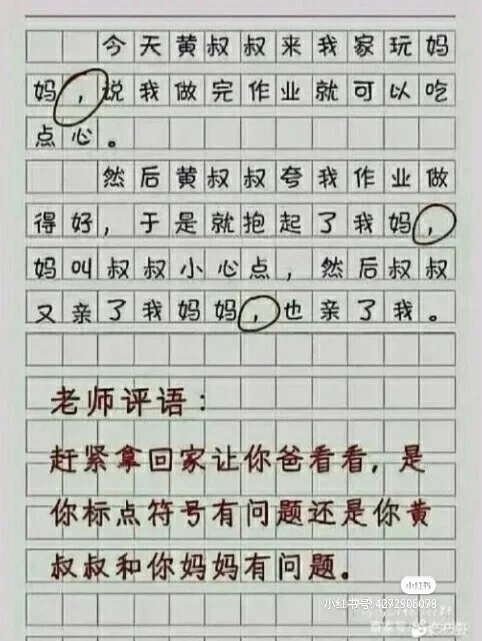 今天黄叔叔来我家玩妈
妈，说我做完作业就可以吃
点心。
然后黄叔叔夸我作业做
得好，于是就抱起了我妈，
妈叫叔叔小心点，然后叔叔
又亲了我妈妈，也亲了我。
老师评语：
赶紧拿回家让你爸看看，是
你标点符号有问题还是你黄
叔叔和你妈妈有问题。
小红书
小红书号: 4272906098